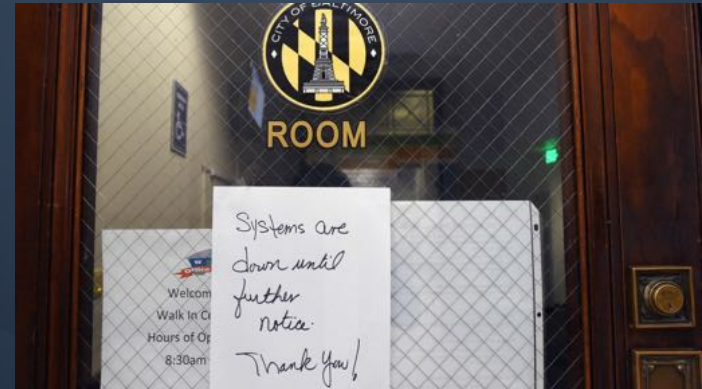 CITY OF BALTIMORE
ROOM
Systems are
down until
further
notice.
Thank You!
Welcom
Walk In C
Hours of Op
8:30am